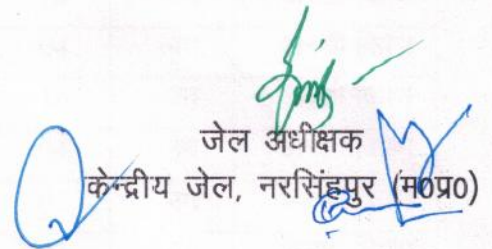 जेल अधीक्षक
केन्द्रीय जेल, नरसिंहपुर (म0प्र0)